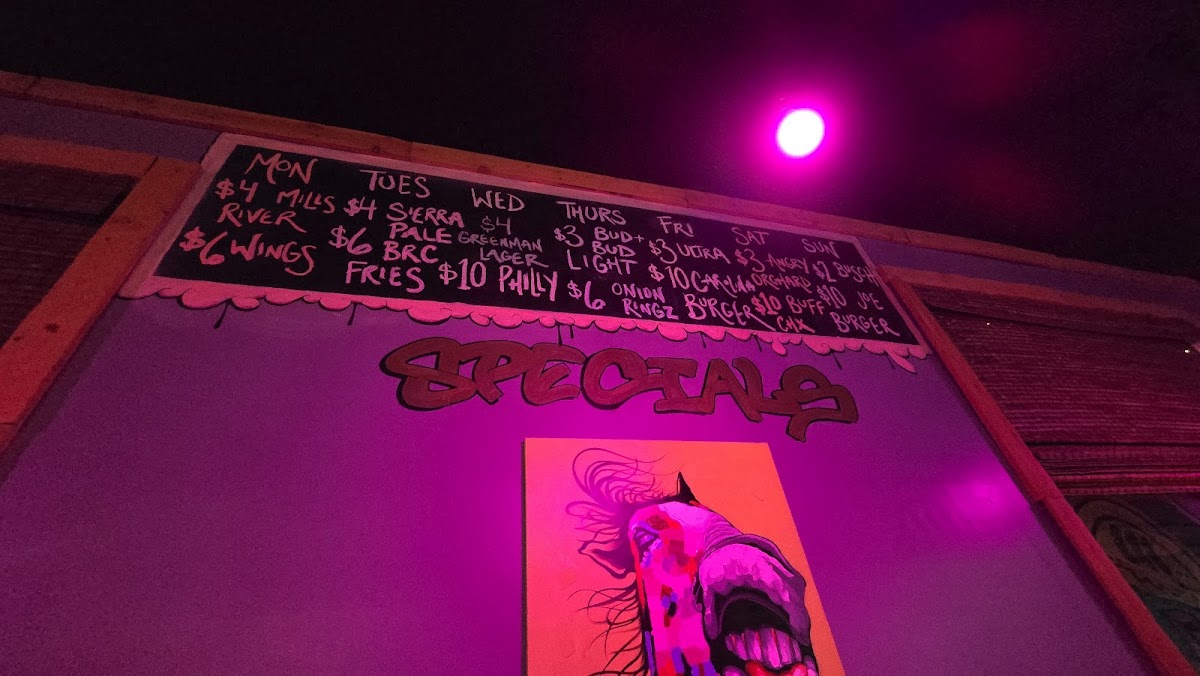 MON
$4 MILLS
RIVER
$6 WINGS
TUES
$4 SIERRA
PALE
$6 BRC
FRIES
WED
$4
GREENMAN
LAGER
$10 PHILLY
THURS
$3 BUD+
BUD
LIGHT
$6 ONION
RINGZ
FRI
$3 ULTRA
$10 CAROLINA
BURGER
SAT
$3 ANGRY
ORCHARD
$10 BUFF
CHX
SUN
$2 BUSCH
$10 JOE
BURGER
SPECIALS